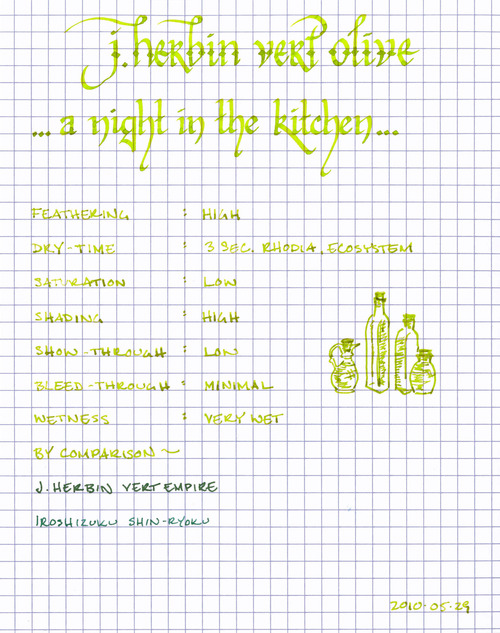 j. herbin vert olive
... a night in the kitchen...
FEATHERING : HIGH
DRY-TIME : 3 SEC. RHODIA, ECOSYSTEM
SATURATION : LOW
SHADING : HIGH
SHOW-THROUGH : LOW
BLEED-THROUGH : MINIMAL
WETNESS : VERY WET
BY COMPARISON ~
J. HERBIN VERT EMPIRE
IROSHIZUKU SHIN-RYOKU
2010.05.29